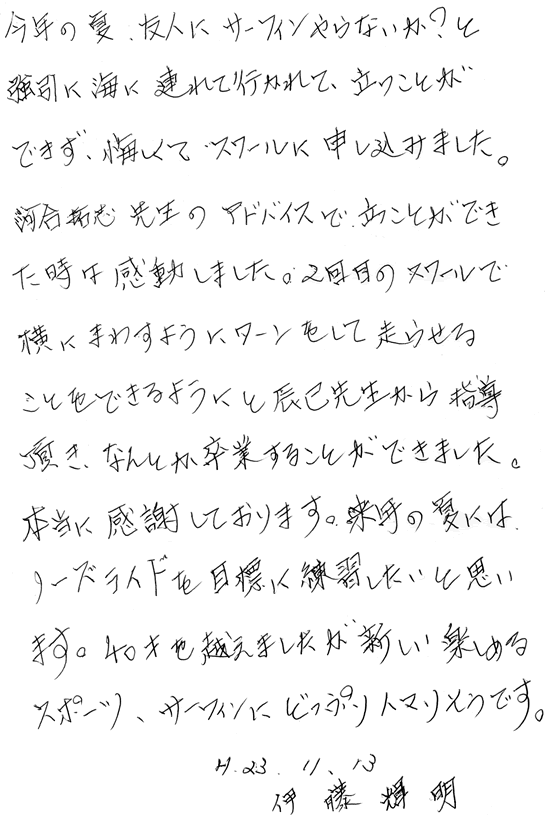 今年の夏、友人にサーフィンやらないか？と
強引に海に連れて行かれて、立つことが
できず、悔しくてスクールに申し込みました。
河合拓志先生のアドバイスで立つことができ
た時は感動しました。2回目のスクールで
横にまわすようにターンをして走らせる
ことをできるようにと辰己先生から指導
頂き、なんとか卒業することができました。
本当に感謝しております。来年の夏には、
ノーズライドを目標に練習したいと思い
ます。40才を越えましたが新しい楽しめる
スポーツ、サーフィンにどっぷりハマりそうです。
H.23.11.13
伊藤輝明